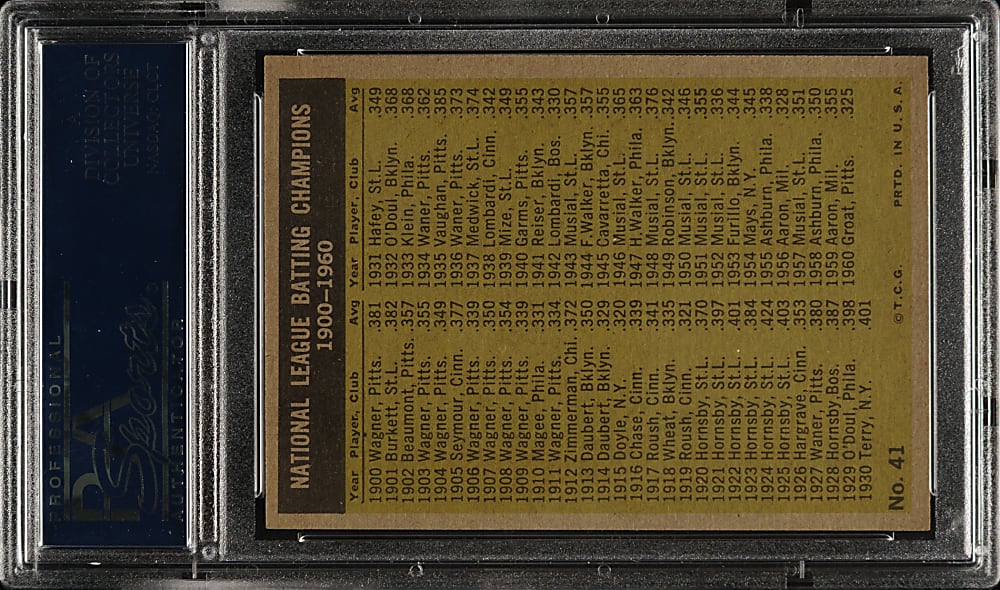 A
DIVISION OF
COLLECTORS
UNIVERSE
NASDAQ: CLCT
PROFESSIONAL
PSA
Sports
AUTHENTICATOR
NATIONAL LEAGUE BATTING CHAMPIONS
1900–1960
Year Player, Club Avg
1900 Wagner, Pitts. .381
1901 Burkett, St.L. .382
1902 Beaumont, Pitts. .357
1903 Wagner, Pitts. .355
1904 Wagner, Pitts. .349
1905 Seymour, Cinn. .377
1906 Wagner, Pitts. .339
1907 Wagner, Pitts. .350
1908 Wagner, Pitts. .354
1909 Wagner, Pitts. .339
1910 Magee, Phila. .331
1911 Wagner, Pitts. .334
1912 Zimmerman, Chi. .372
1913 Daubert, Bklyn. .350
1914 Daubert, Bklyn. .329
1915 Doyle, N.Y. .320
1916 Chase, Cinn. .339
1917 Roush, Cinn. .341
1918 Wheat, Bklyn. .335
1919 Roush, Cinn. .321
1920 Hornsby, St.L. .370
1921 Hornsby, St.L. .397
1922 Hornsby, St.L. .401
1923 Hornsby, St.L. .384
1924 Hornsby, St.L. .424
1925 Hornsby, St.L. .403
1926 Hargrave, Cinn. .353
1927 Waner, Pitts. .380
1928 Hornsby, Bos. .387
1929 O'Doul, Phila. .398
1930 Terry, N.Y. .401
Year Player, Club Avg
1931 Hafey, St.L. .349
1932 O'Doul, Bklyn. .368
1933 Klein, Phila. .368
1934 Waner, Pitts. .362
1935 Vaughan, Pitts. .385
1936 Waner, Pitts. .373
1937 Medwick, St.L. .374
1938 Lombardi, Cinn. .342
1939 Mize, St.L. .349
1940 Garms, Pitts. .355
1941 Reiser, Bklyn. .343
1942 Lombardi, Bos. .330
1943 Musial, St.L. .357
1944 F.Walker, Bklyn. .357
1945 Cavarretta, Chi. .355
1946 Musial, St.L. .365
1947 H.Walker, Phila. .363
1948 Musial, St.L. .376
1949 Robinson, Bklyn. .342
1950 Musial, St.L. .346
1951 Musial, St.L. .355
1952 Musial, St.L. .336
1953 Furillo, Bklyn. .344
1954 Mays, N.Y. .345
1955 Ashburn, Phila. .338
1956 Aaron, Mil. .328
1957 Musial, St.L. .351
1958 Ashburn, Phila. .350
1959 Aaron, Mil. .355
1960 Groat, Pitts. .325
No. 41
© T.C.G. PRTD. IN U.S.A.